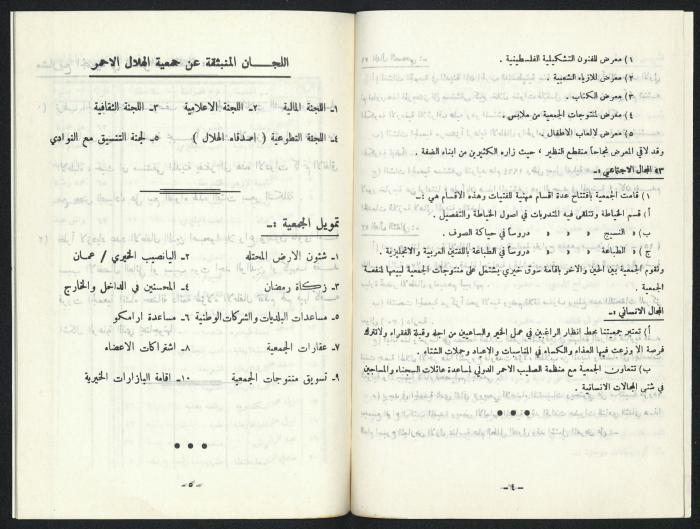 ١) معرض للفنون التشكيلية الفلسطينية .
٢) معرض للازياء الشعبية .
٣) معرض الكتاب .
٤) معرض لمنتوجات الجمعية من ملابس .
٥) معرض لالعاب الاطفال .
وقد لاقى المعرض نجاحاً منقطع النظير ، حيث زاره الكثيرين من ابناء الضفة .
٣ـ المجال الاجتماعي :ـ
١) قامت الجمعية بافتتاح عدة اقسام مهنية للفتيات وهذه الاقسام هي :ـ
أ) قسم الخياطة وتتلقى فيه المتدربات في اصول الخياطة والتفصيل .
ب) » النسيج » » » دروساً في حياكة الصوف .
ج) » الطباعة » » » دروساً في الطباعة باللغتين العربية والانجليزية .
وتقوم الجمعية بين الحين والاخر باقامة سوق خيري يشتمل على منتوجات الجمعية لبيعها لمنفعة
الجمعية .
المجال الانساني :ـ
أ) تعتبر جمعيتنا محط انظار الراغبين في عمل الخير والساعيين من اجله وقبلة الفقراء ولاتترك
فرصة الا وزعت فيها الغذاء والكساء في المناسبات والاعياد وحملات الشتاء .
ب) تتعاون الجمعية مع منظمة الصليب الاحمر الدولي لمساعدة عائلات السجناء والمساجين
في شتى المجالات الانسانية .
ـ ٤ ـ
اللجـــان المنبثقة عن جمعية الهلال الاحمر
١ـ اللجنة المالية ٢ـ اللجنة الاعلامية ٣ـ اللجنة الثقافية
٤ـ اللجنة التطوعية ( اصدقاء الهلال ) ٥ـ لجنة التنسيق مع النوادي
تمويل الجمعية :ـ
١ـ شئون الارض المحتله ٢ـ اليانصيب الخيري / عمان
٣ـ زكاة رمضان ٤ـ المحسنين في الداخل والخارج
٥ـ مساعدات البلديات والشركات الوطنية ٦ـ مساعدة ارامكو
٧ـ عقارات الجمعية ٨ـ اشتراكات الاعضاء
٩ـ تسويق منتوجات الجمعية ١٠ـ اقامة البازارات الخيرية
ـ ٥ ـ